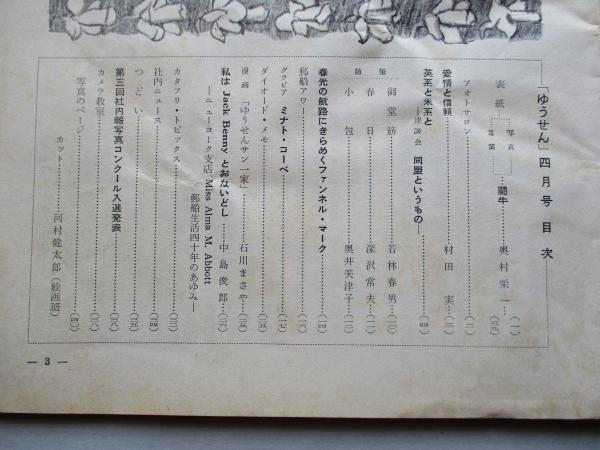 「ゆうせん」四月号 目次
表紙 写真 言葉……闘牛……奥村栄一…(一)
フォトサロン……(二)
愛情と信頼……村田 実…(三)
英系と米系と
―座談会 同盟というもの―……(四)
随筆
御堂筋……若林春男…(一〇)
春日……深沢常夫…(一一)
小包……奥井美津子…(一二)
春光の航路にきらめくファンネル・マーク
郵船アワー
グラビア ミナト・コーベ
ダイオード・メモ
漫画「ゆうせんサン一家」……石川まさや
私は Jack Benny とおないどし……中島俊郎
―ニューヨーク支店 Miss Alma M. Abbott
郵船生活四十年のあゆみ―
カタフリ・トピックス
社内ニュース
つどい
第三回社内報写真コンクール入選発表
カメラ教室
写真のページ
カット……河村健太郎(絵画班)
― 3 ―